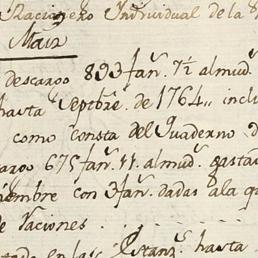 Racionero Individual de la
Maiz
descargo 893 fan.s 7½ almud.s
hasta Septbre. de 1764,, inclu
como consta del Quaderno d
argo 675 fan.s 11. almud.s gastad
iembre con 3 fan.s dadas a la q
de Raciones . . . . . .
en las Estanz.s hasta